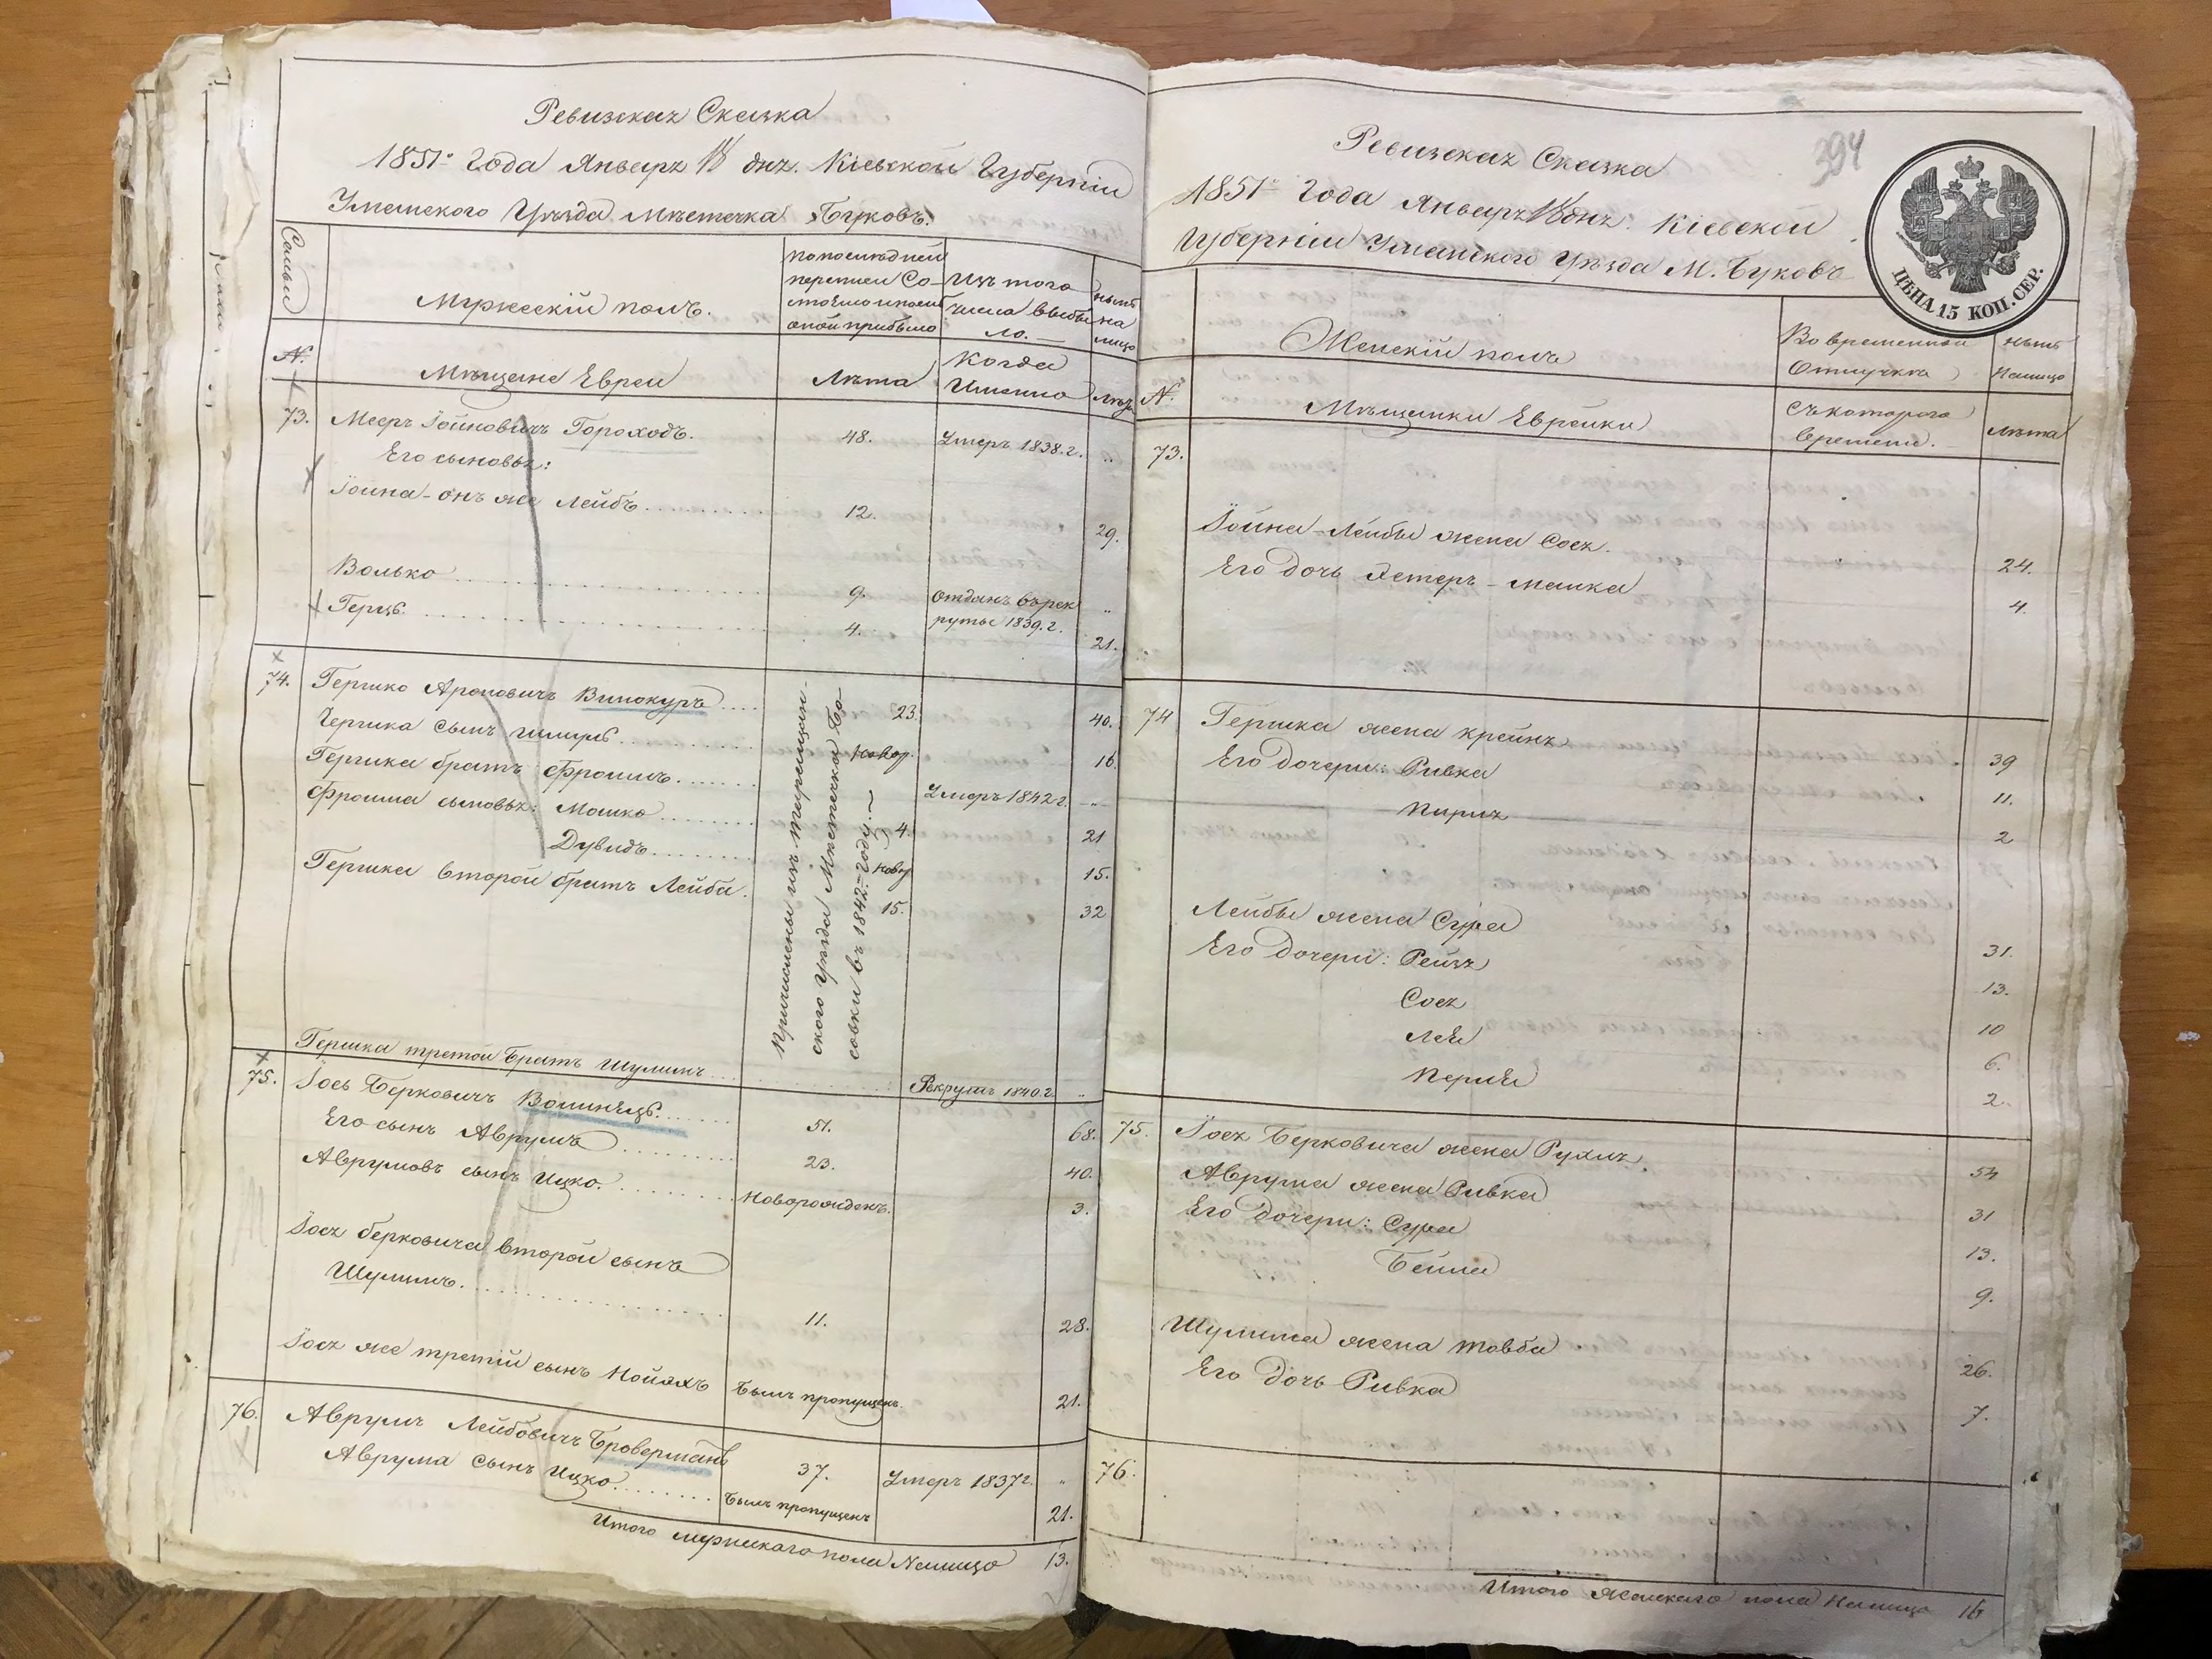 Ревизкая Сказка
1851го Года Января 18 дня. Кіевской Губерніи
Уманского Уезда Местечка Буковъ.
Семьи
Мужескій полъ.
По последней
переписи Со-
стояло и после
оной прибыло
Изъ того
числа выбы
ло.
Ныне
на
лицо
№
Мещане Евреи
Лета
Когда
Именно
Лета
73. Мееръ Іойновичъ Гороходъ. 48. Умеръ 1838.г. "
Его сыновья:
Іойна-онъ же Лейбъ 12. 29.
Волько 9. отданъ въ рек
руты 1839.г. "
Герцъ 4. 21.
74. Гершко Ароновичъ Винокуръ 23. 40.
Гершка сынъ Шмуль Новор. 16
Гершка братъ Фроимъ Умеръ 1842 г. "
Фроима сыновья: Мошко 4. 21
Дувидъ Новор 15.
Гершка второй братъ Лейба. 15. 32
Причислены изъ Таращан-
ского Уезда Местечка Бо
совки въ 1842-году.
Гершка третой Братъ Шулимъ Рекрутъ 1840.г. "
75. Іось Берковичъ Волинецъ. 51. 68.
Его сынъ Аврумъ 23. 40.
Аврумовъ сынъ Ицко. Новорожденъ. 3.
Іося Берковича второй сынъ
Шулимъ. 11. 28.
Іося же третій сынъ Нойахъ Былъ пропущенъ. 21.
76. Аврумъ Лейбовичъ Броверманъ 37. Умеръ 1837 г. "
Аврума сынъ Ицко Былъ пропущенъ 21.
Итого мужескаго пола На лицо 13.
394
Ревизкая Сказка
1851го Года Января 18 дня. Кіевской
Губерніи Уманского Уезда М. Буковъ
ЦѢНА 15 КОП. СЕР.
Женскій полъ
Во временной
Отлучке
Ныне
На лицо
№
Мещанки Еврейки
Съ котораго
времени.
Лета
73.
Іойна-Лейбы жена Сося. 24.
Его дочь Эстеръ-Малка 4.
74 Гершка жена Крейня 39
Его дочери: Ривка 11.
Пиря 2
Лейбы жена Сура 31.
Его дочери: Рейзя 13.
Сося 10
Лея 6.
Перля 2.
75. Іося Берковича жена Рухля. 54
Аврума жена Ривка 31
Его дочери: Сура 13.
Бейла 9.
Шулима жена Товба 26.
Его дочь Ривка 7.
76.
Итого Женскаго пола На лицо 16